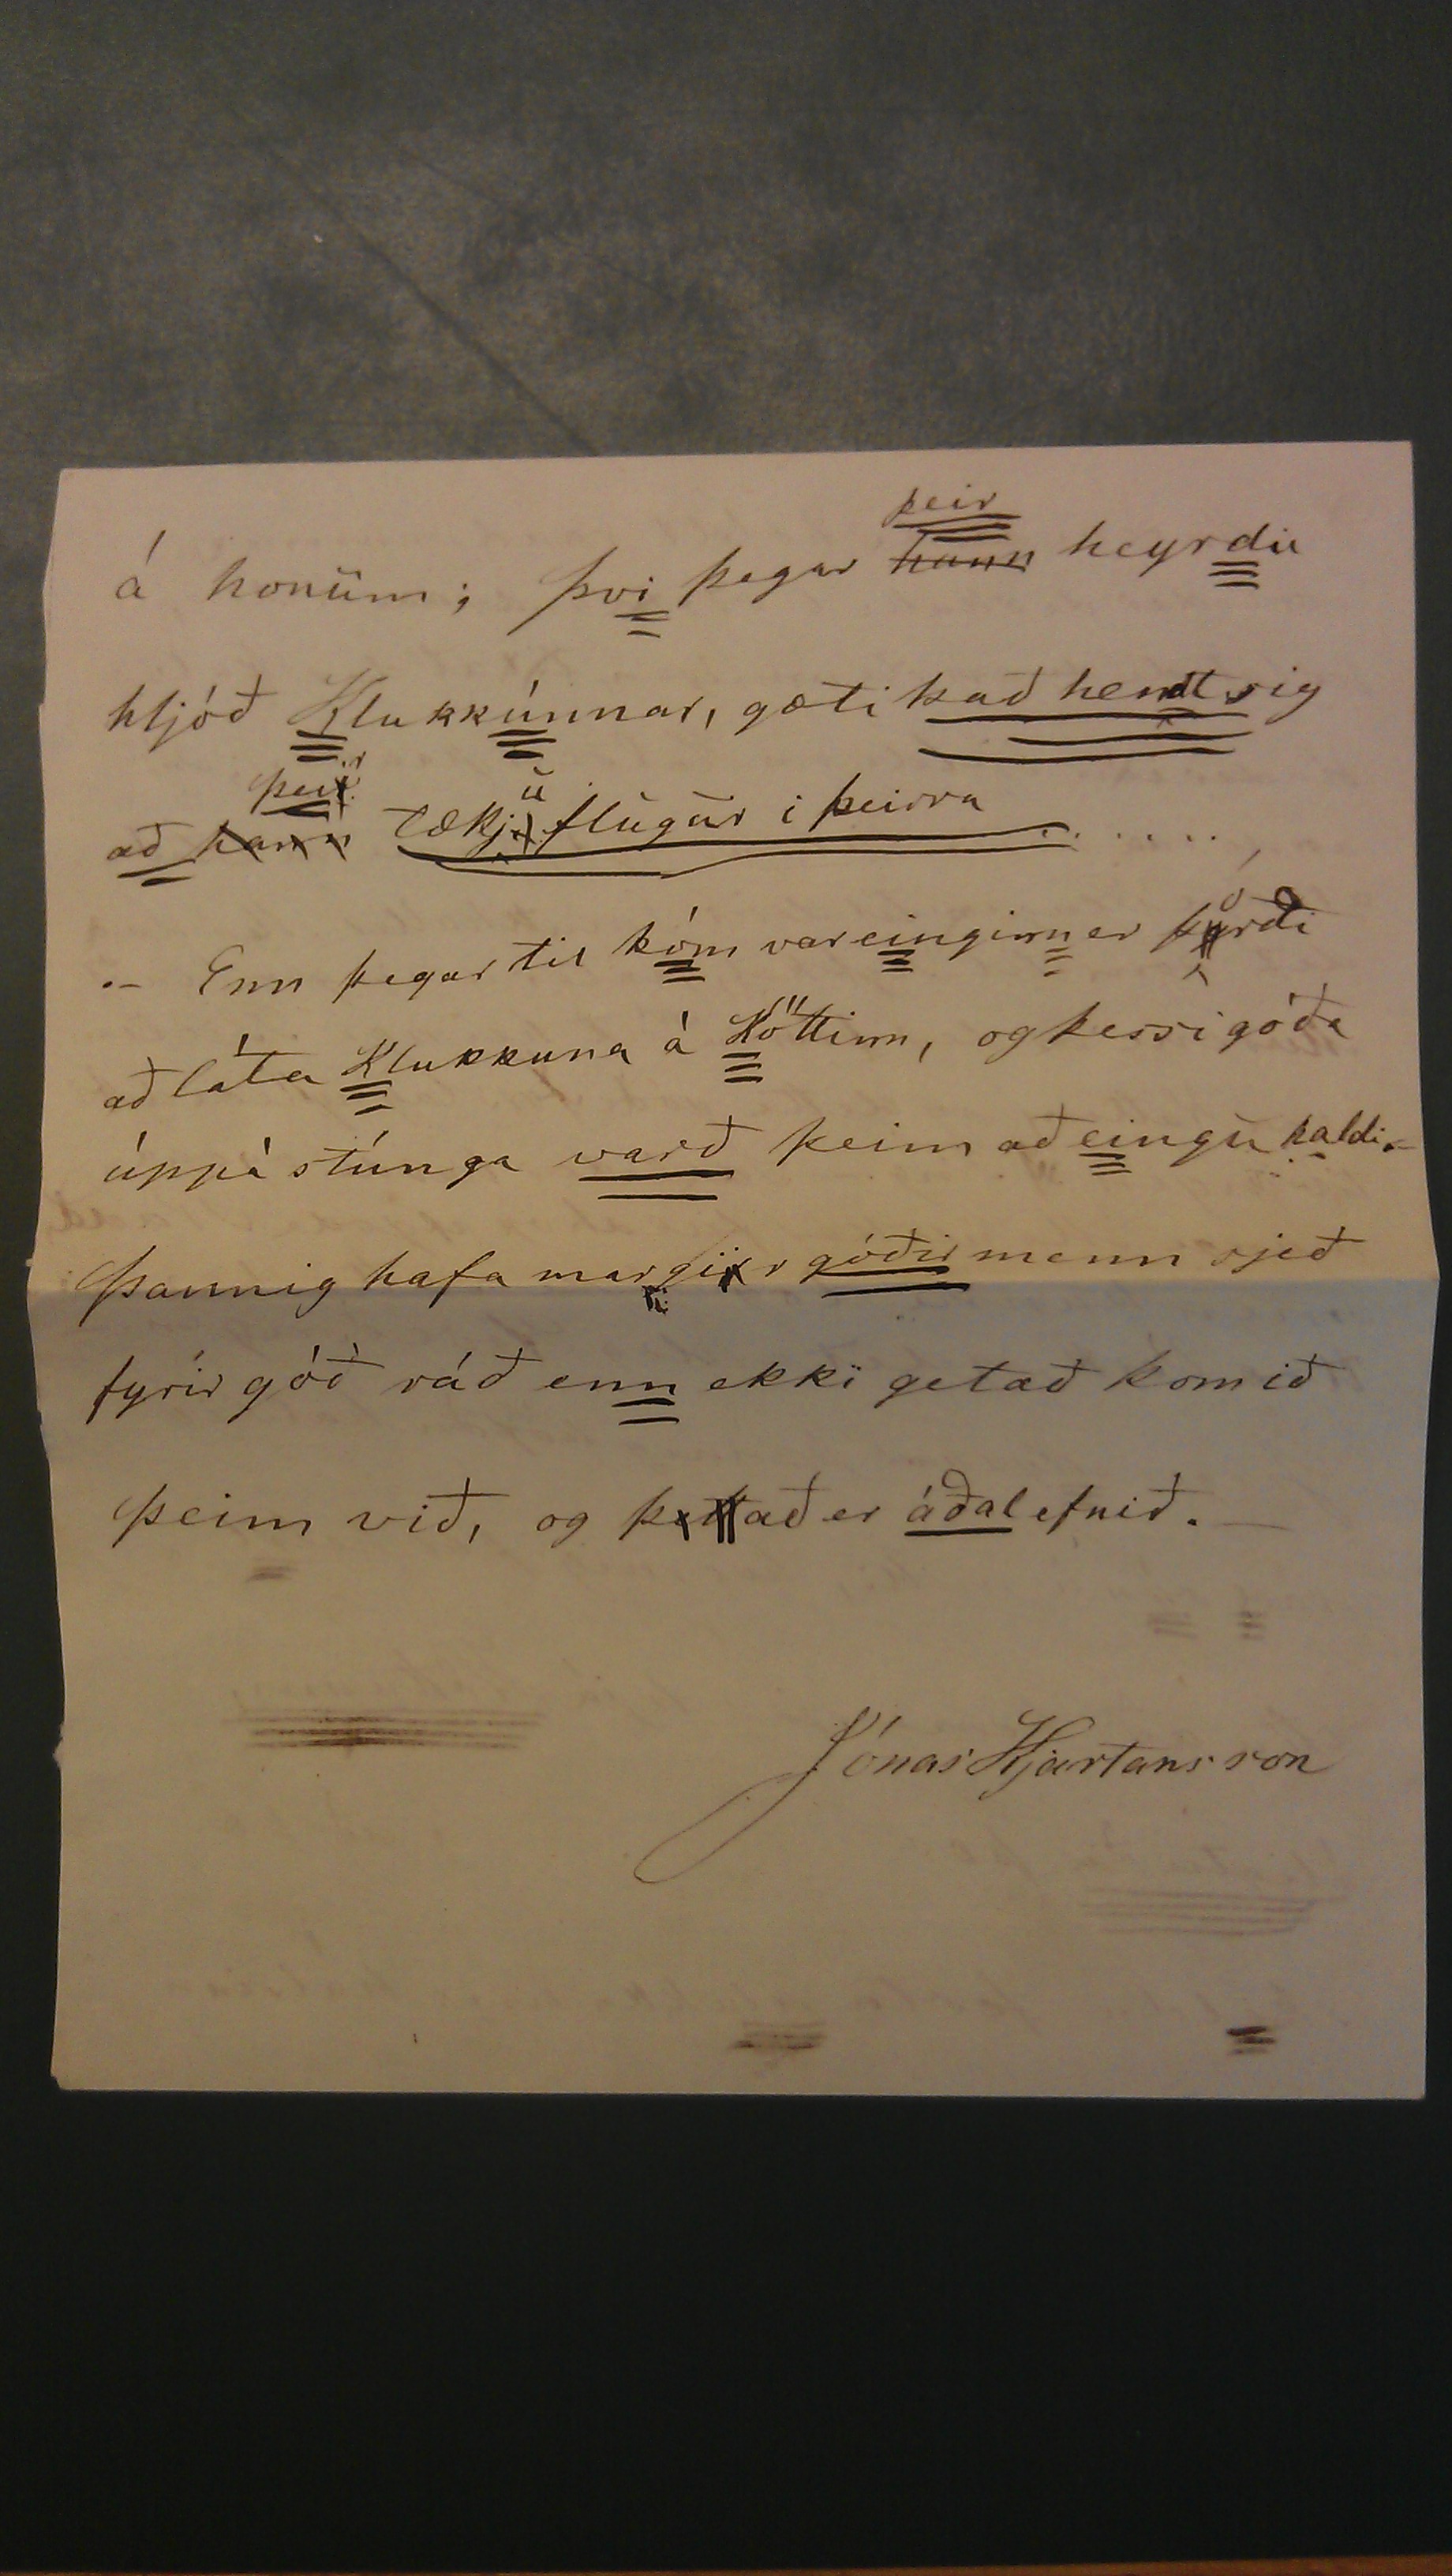 á honum; því þegar þeir hann heyrdu
hljóð Klukkúnnar, gæti það hendt sig
að þeir hann tækju flugur i þeirra ......
.- Enn þegar til kóm var einginn er þórði
að láta Klukkuna á Köttinn, og þessi góða
úppá stúnga varð þeim að eingu haldi.-
Þannig hafa margir góðir menn sjeð
fyrir góð ráð enn ekki getað komið
þeim við, og það er áðalefnið. -
Jónas Hjartansson